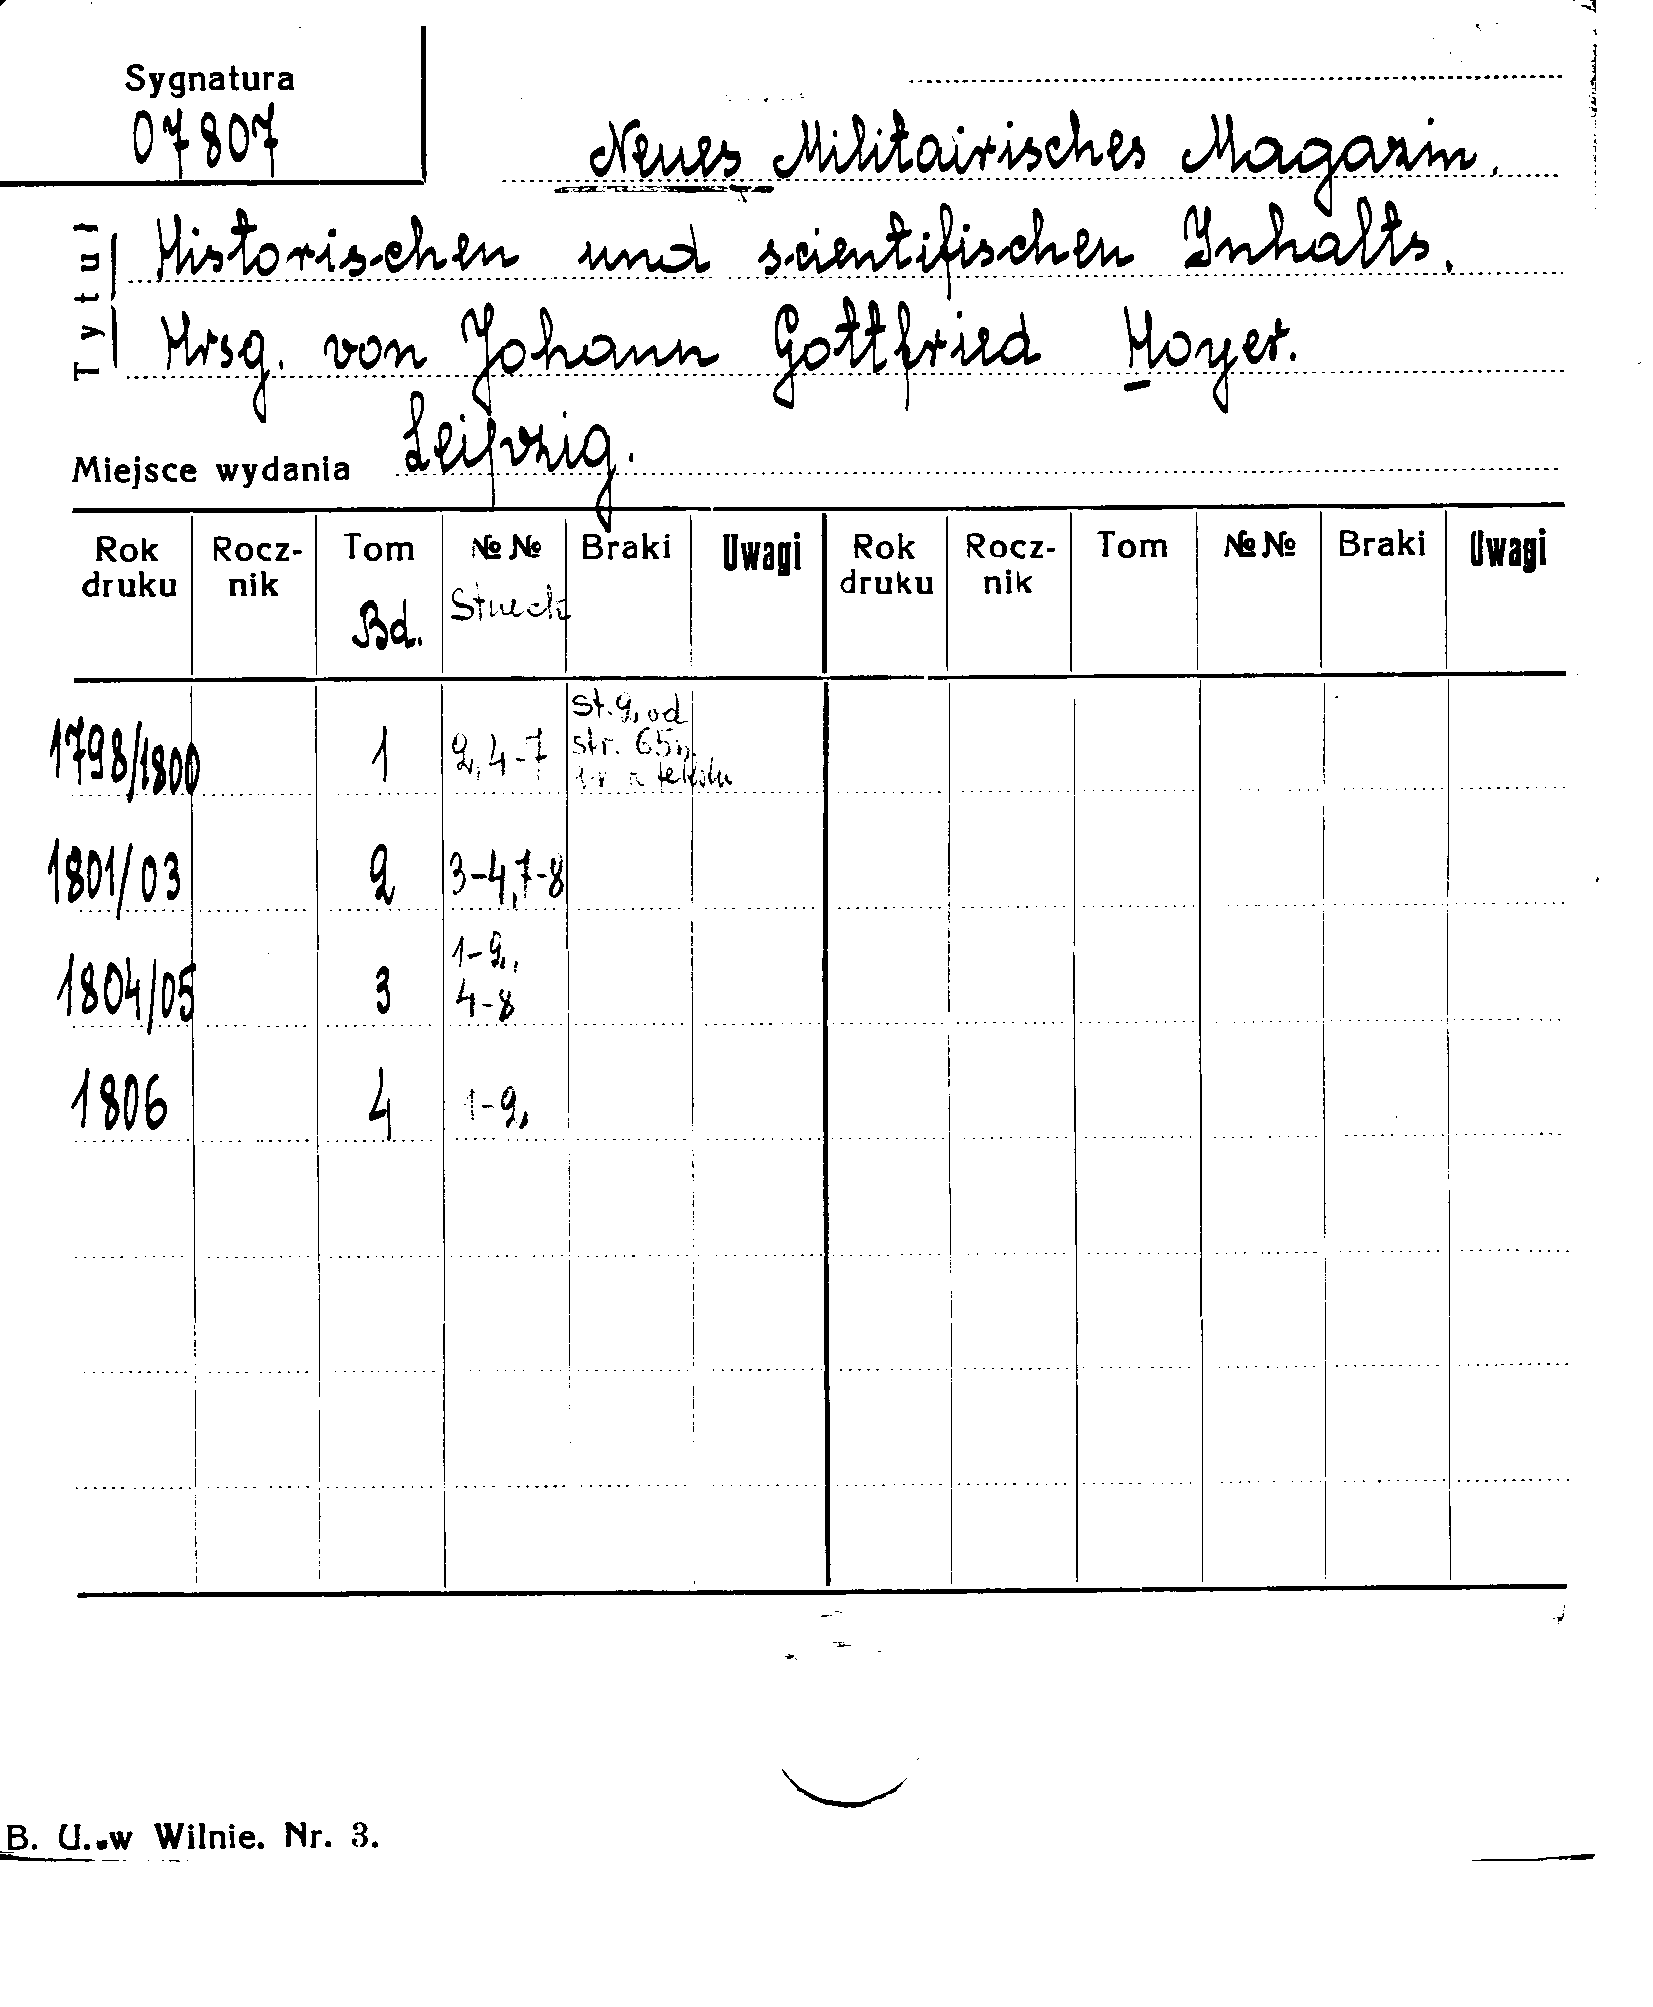 Sygnatura
07807
Neues Militairisches Magazin.
Tytuł
Historischen und scientifischen Inhalts.
Hrsg. von Johann Gottfried Hoyer.
Miejsce wydania Leipzig.
Rok druku Rocz-nik Tom №№ Braki Uwagi Rok druku Rocz-nik Tom №№ Braki Uwagi
Bd. Stueck
St. 2, od
1798/1800 1 2, 4-7 str. 65
tekstu
1801/03 2 3-4, 7-8
1-2,
1804/05 3 4-8
1806 4 1-2,
B. U. w Wilnie. Nr. 3.